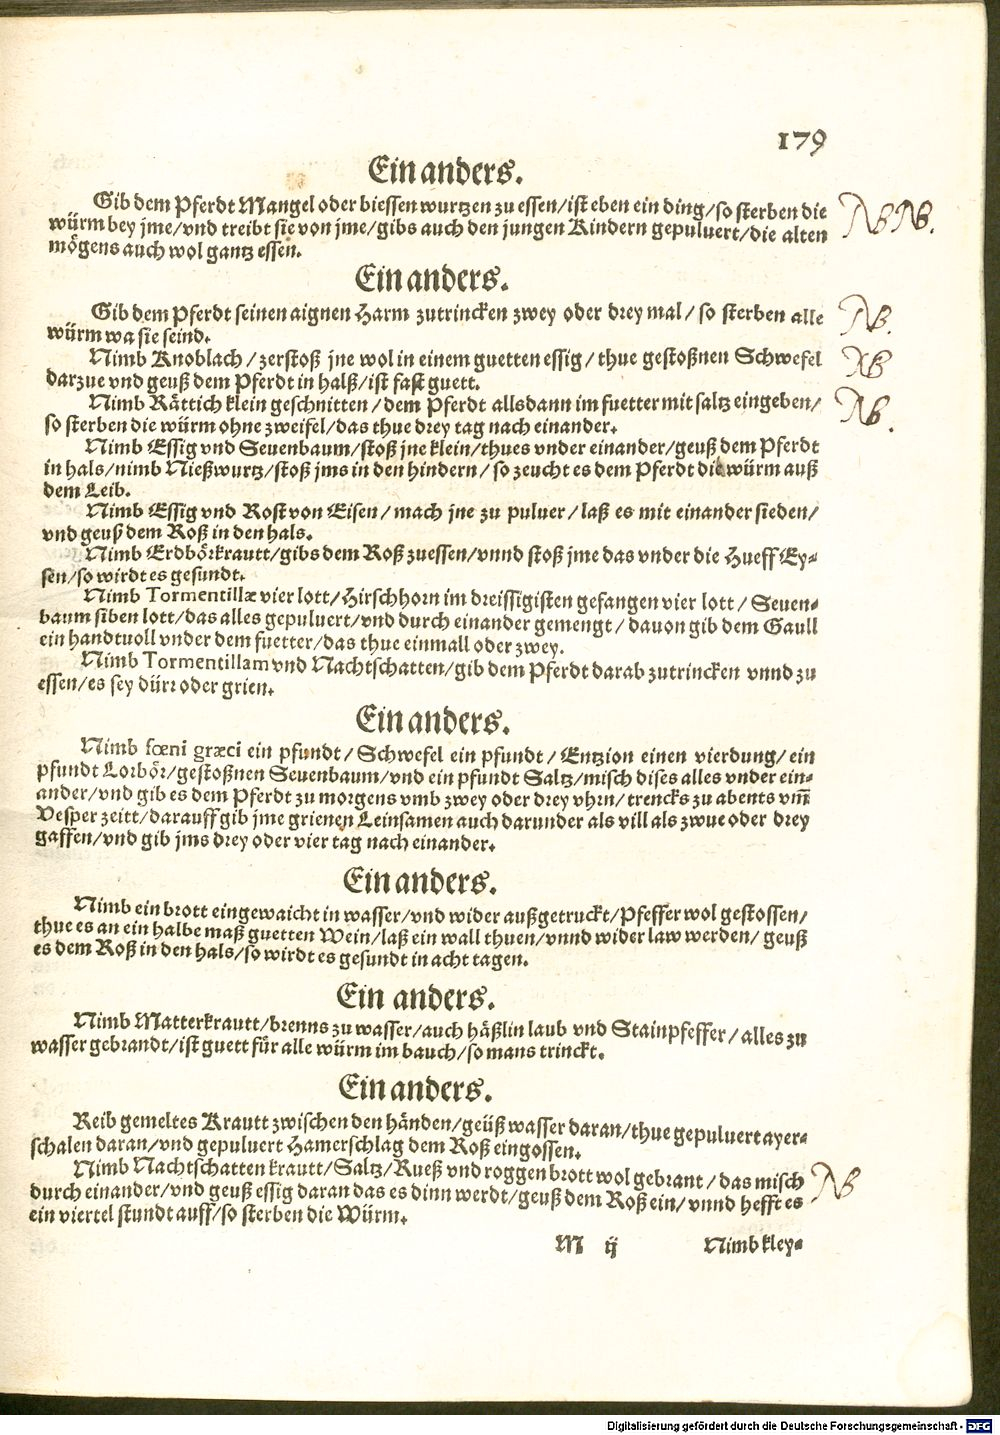 179
Ein anders.
Gib dem Pferdt Mangel oder biessen wurtzen zu essen/ist eben ein ding/so sterben die
würm bey jme/vnd treibt sie von jme/gibs auch den jungen Kindern gepuluert/die alten
mögens auch wol gantz essen.
NB NB.
Ein anders.
Gib dem Pferdt seinen aignen Harm zutrincken zwey oder drey mal/so sterben alle
würm wa sie seind.
NB.
Nimb Knoblach/zerstoß jne wol in einem guetten essig/thue gestoßnen Schwefel
darzue vnd geuß dem Pferdt in halß/ist fast guett.
NB
Nimb Rättich klein geschnitten/dem Pferdt allsdann im fuetter mit saltz eingeben/
so sterben die würm ohne zweifel/das thue drey tag nach einander.
NB.
Nimb Essig vnd Seuenbaum/stoß jne klein/thues vnder einander/geuß dem Pferdt
in hals/nimb Nießwurtz/stoß jms in den hindern/so zeucht es dem Pferdt die würm auß
dem Leib.
Nimb Essig vnd Rost von Eisen/mach jne zu puluer/laß es mit einander sieden/
vnd geuß dem Roß in den hals.
Nimb Erdbörkrautt/gibs dem Roß zuessen/vnnd stoß jme das vnder die Hueff Ey-
sen/so wirdt es gesundt.
Nimb Tormentillæ vier lott/Hirschhorn im dreissigisten gefangen vier lott/Seuen-
baum siben lott/das alles gepuluert/vnd durch einander gemengt/dauon gib dem Gaull
ein handtuoll vnder dem fuetter/das thue einmall oder zwey.
Nimb Tormentillam vnd Nachtschatten/gib dem Pferdt darab zutrincken vnnd zu
essen/es sey dürr oder grien.
Ein anders.
Nimb fœni græci ein pfundt/Schwefel ein pfundt/Entzion einen vierdung/ein
pfundt Lorbör/gestoßnen Seuenbaum/vnd ein pfundt Saltz/misch dises alles vnder ein-
ander/vnd gib es dem Pferdt zu morgens vmb zwey oder drey vhrn/trencks zu abents vm̃
Vesper zeitt/darauff gib jme grienen Leinsamen auch darunder als vill als zwue oder drey
gaffen/vnd gib jms drey oder vier tag nach einander.
Ein anders.
Nimb ein brott eingewaicht in wasser/vnd wider außgetruckt/Pfeffer wol gestossen/
thue es an ein halbe maß guetten Wein/laß ein wall thuen/vnnd wider law werden/geuß
es dem Roß in den hals/so wirdt es gesundt in acht tagen.
Ein anders.
Nimb Matterkrautt/brenns zu wasser/auch häßlin laub vnd Stainpfeffer/alles zu
wasser gebrandt/ist guett für alle würm im bauch/so mans trinckt.
Ein anders.
Reib gemeltes Krautt zwischen den händen/geüß wasser daran/thue gepuluert ayer-
schalen daran/vnd gepuluert Hamerschlag dem Roß eingossen.
Nimb Nachtschatten krautt/Saltz/Rueß vnd roggen brott wol gebrant/das misch
durch einander/vnd geuß essig daran das es dinn werdt/geuß dem Roß ein/vnnd hefft es
ein viertel stundt auff/so sterben die Würm.
NB
M ij
Nimb kley-
Digitalisierung gefördert durch die Deutsche Forschungsgemeinschaft - DFG